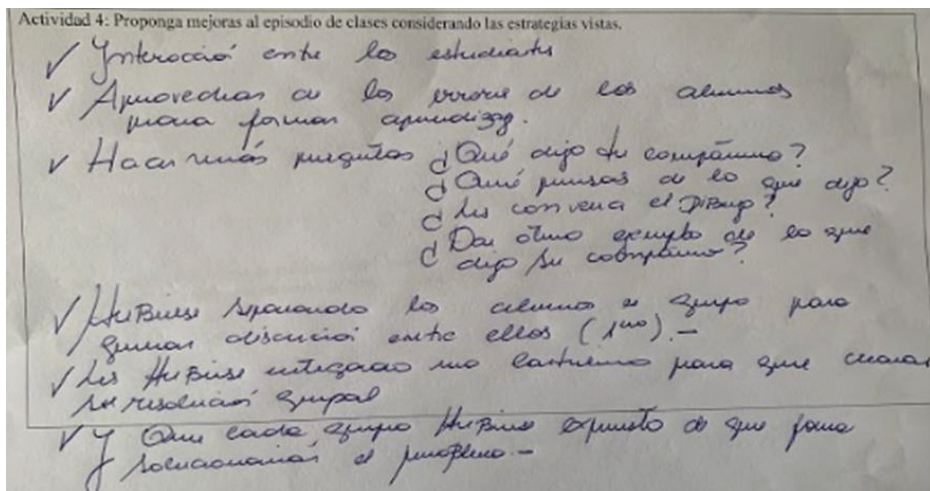 Actividad 4: Proponga mejoras al episodio de clases considerando las estrategias vistas.
✓ Interacció entre los estudiantes
✓ Aprovechar de los errores de los alumnos
para formar aprendizaj.
✓ Hacer más preguntas ¿Qué dijo tu compañero?
¿Qué piensas de lo que dijo?
¿Les convence el Dibujo?
¿Dar otro ejemplo de lo que
dijo su compañero?
✓ HuBiese separando los alumno en grupo para
generar discusión entre ellos (1ero).-
✓ Les HuBiese entregado una cartulina para que crearan
su resolución grupal
✓ Y Que cada grupo HuBiese expuesto de que forma
solucionarías el problema -